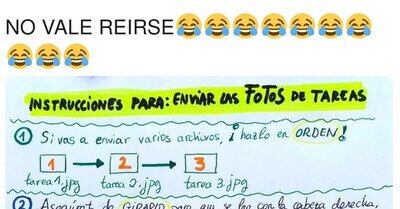 NO VALE REIRSE😂😂😂😂😂😂😂
😂😂😂
INSTRUCCIONES PARA: ENVIAR LAS FOTOS DE TAREAS
① Si vas a enviar varios archivos, ¡hazlo en ORDEN!
1 → 2 → 3
tarea 1.jpg tarea 2.jpg tarea 3.jpg
② GIRARLO para que se lea con la cabeza derecha,